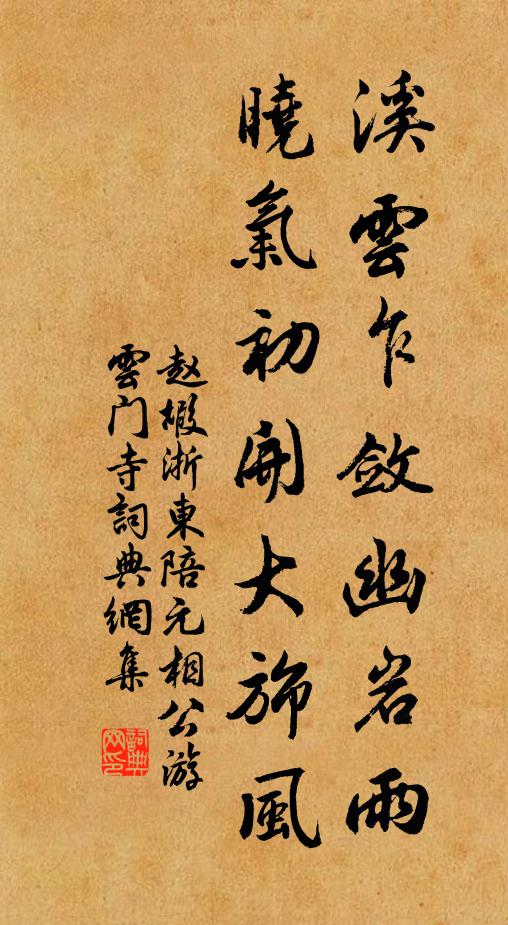 溪雲乍斂幽岩雨
曉氣初開大旆風
赵嘏浙東陪元相公游
雲门寺詞典網集
詞典
网印